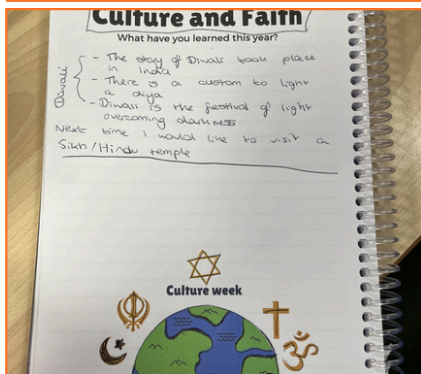 Culture and Faith
What have you learned this year?
Diwali
- The story of Diwali took place
in India
- There is a custom to light
a diya
- Diwali is the festival of light
overcoming darkness
Next time I would like to visit a
Sikh/Hindu temple
Culture week
ॐ